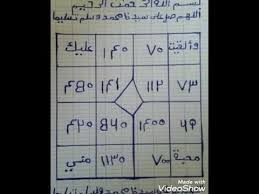 بسم الله الرحمن الرحيم
اللهم صل على سيدنا محمد وسلم تسليما
وألقيت ٧٥ ١٤٥ عليك
٧٣ ١١٢ ١٤١
١٤٥٥ ٨٤٥ ٤٣٥
محبة ٧٥٥ ١١٣٥ مني
Made with
VideoShow